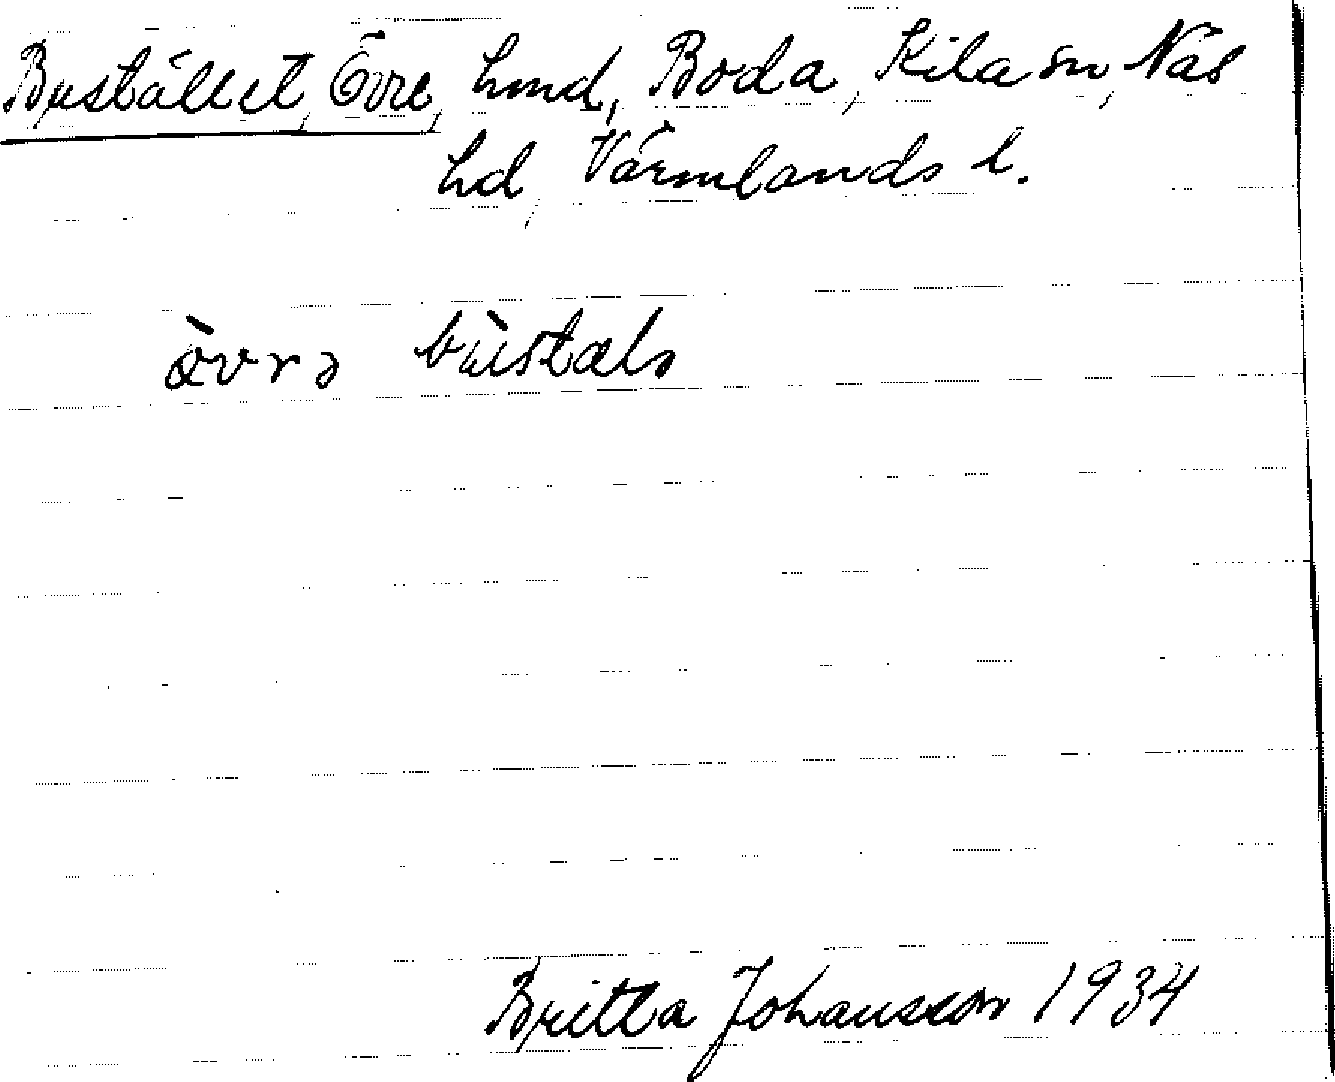 Bustället, Övre, hmd, Boda, Kila sn, Näs
hd, Värmlands l.
òvrə bùstælə
Britta Johansson 1934